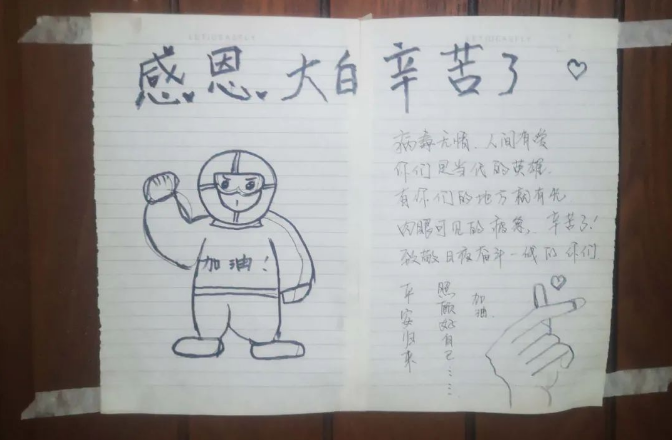 感恩大白辛苦了
病毒无情，人间有爱
你们是当代的英雄
有你们的地方就有光
肉眼可见的疲惫，辛苦了！
致敬日夜奋斗一线的你们
加油！
加油
照顾好自己……
平安归来